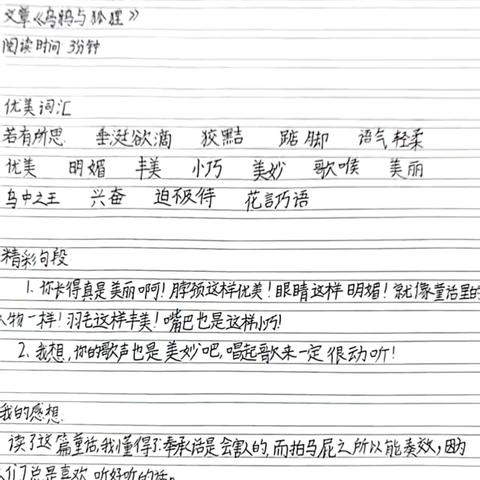 文章《乌鸦与狐狸》
阅读时间 3分钟
优美词汇
若有所思 垂涎欲滴 狡黠 踮脚 语气轻柔
优美 明媚 丰美 小巧 美妙 歌喉 美丽
鸟中之王 兴奋 迫不及待 花言巧语
精彩句段
1. 你长得真是美丽啊！脖颈这样优美！眼睛这样明媚！就像童话里的
人物一样！羽毛这样丰美！嘴巴也是这样小巧！
2. 我想，你的歌声也是美妙吧，唱起歌来一定很动听！
我的感想
读了这篇童话，我懂得了：奉承话是会害人的，而拍马屁之所以能奏效，因
人们总是喜欢听好听的话。